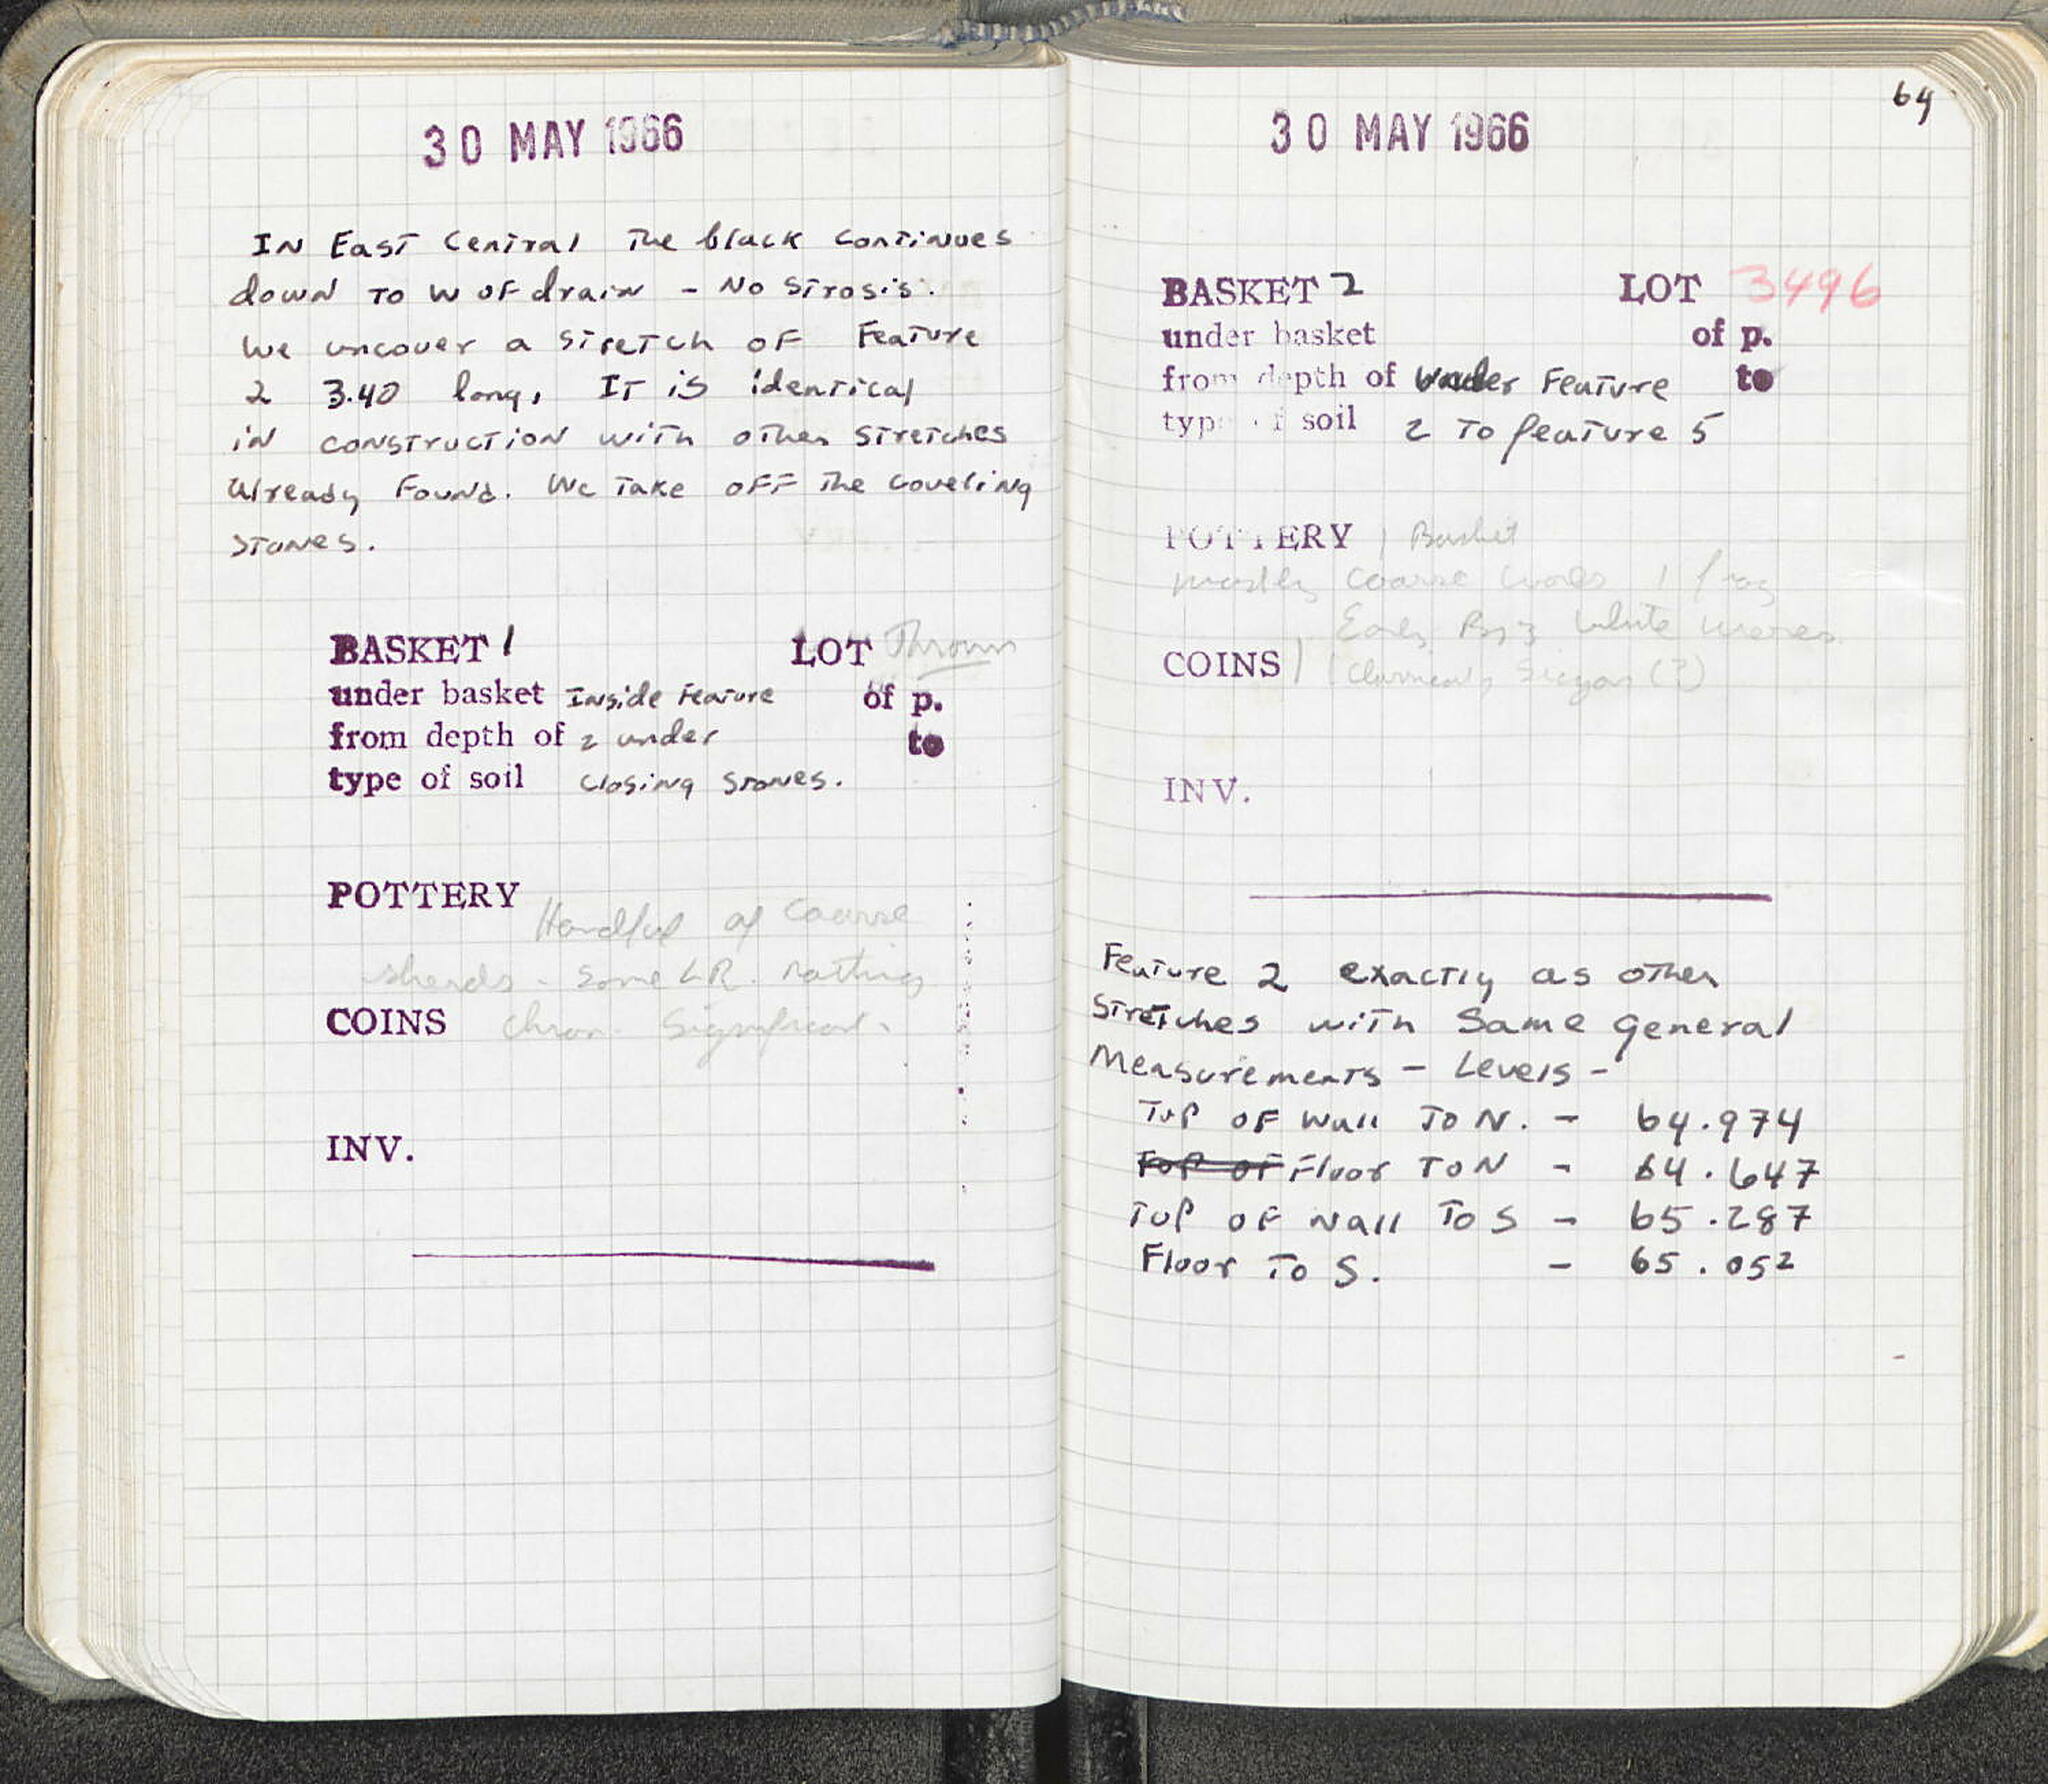 30 MAY 1966
IN East Central the black continues
down to W of drain - No strosis.
We uncover a stretch of Feature
2 3.40 long, It is identical
in construction with other stretches
already found. We take off the covering
stones.
BASKET 1 LOT Thrown
under basket Inside Feature of p.
from depth of 2 under to
type of soil closing stones.
POTTERY Handful of coarse
sherds - some LR. nothing
COINS chron. significant.
INV.
64
30 MAY 1966
BASKET 2 LOT 3496
under basket of p.
from depth of under Feature to
type of soil 2 to feature 5
POTTERY 1 Basket
mostly coarse wares 1 frag
Early Byz white wares
COINS 1 (
INV.
Feature 2 exactly as other
stretches with same general
measurements - Levels -
Top of wall to N. - 64.974
Top of Floor to N - 64.647
Top of wall to S - 65.287
Floor to S. - 65.052